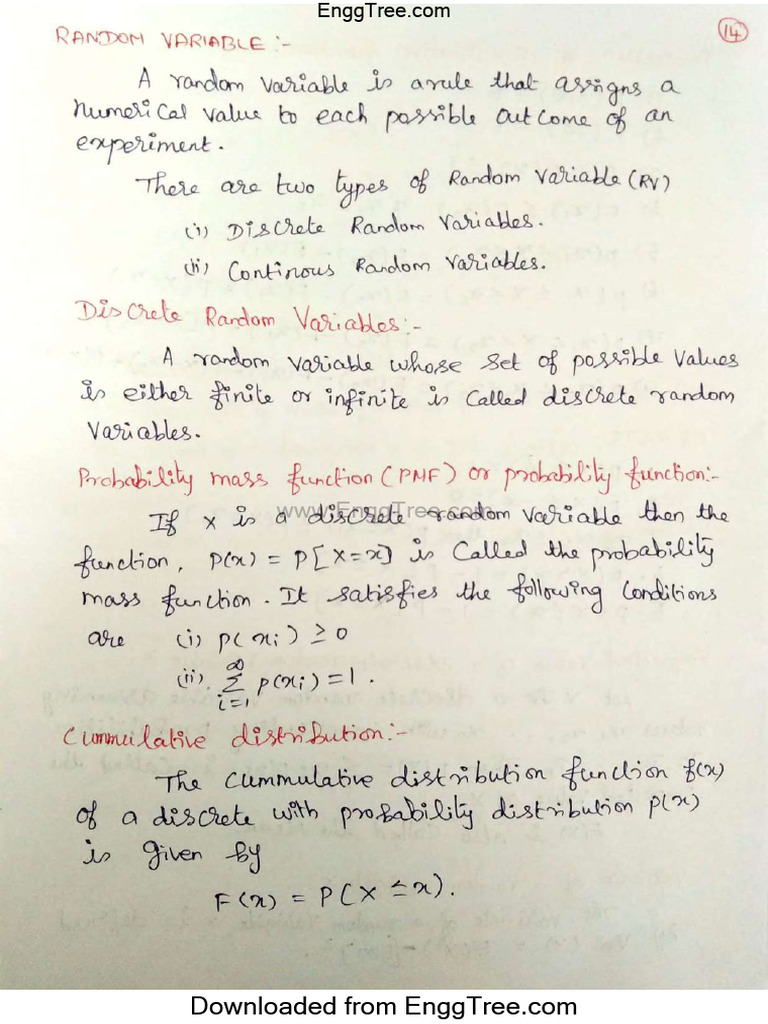 EnggTree.com
14
RANDOM VARIABLE :-
A random variable is a rule that assigns a
numerical value to each possible outcome of an
experiment.
There are two types of Random variable (RV)
(i) Discrete Random Variables.
(ii) Continous Random Variables.
Discrete Random Variables:-
A random variable whose set of possible values
is either finite or infinite is called discrete random
variables.
Probability mass function (PMF) or probability function:-
www.EnggTree.com
If X is a discrete random variable then the
function, P(x) = P[X=x] is called the probability
mass function. It satisfies the following conditions
are (i) p(xi) ≥ 0
(ii) ∞∑i=1 p(xi) = 1.
Cummulative distribution:-
The cummulative distribution function f(x)
of a discrete with probability distribution p(x)
is given by
F(x) = P(X ≤ x).
Downloaded from EnggTree.com